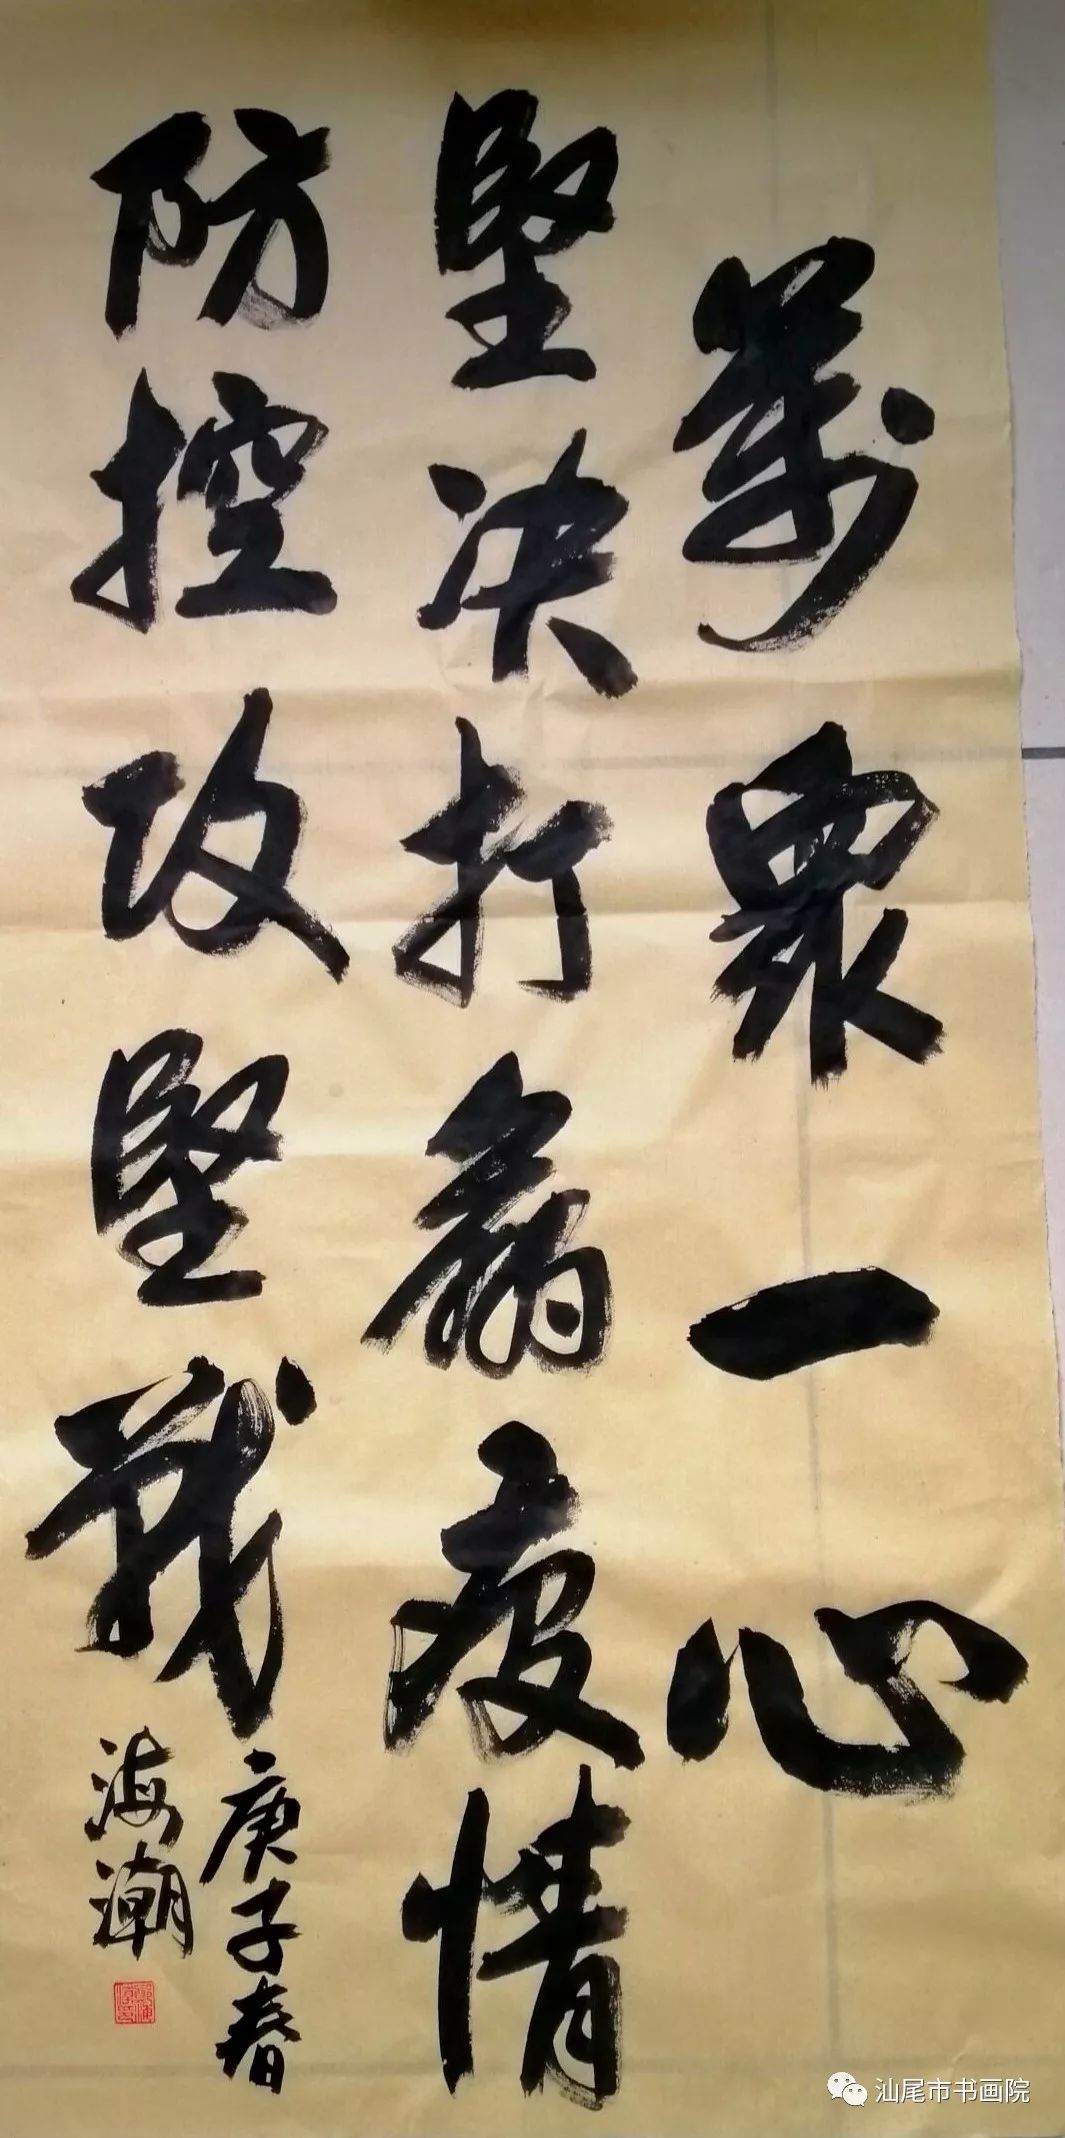 萬眾一心
堅决打赢疫情
防控攻堅戰
庚子春
海潮
汕尾市书画院